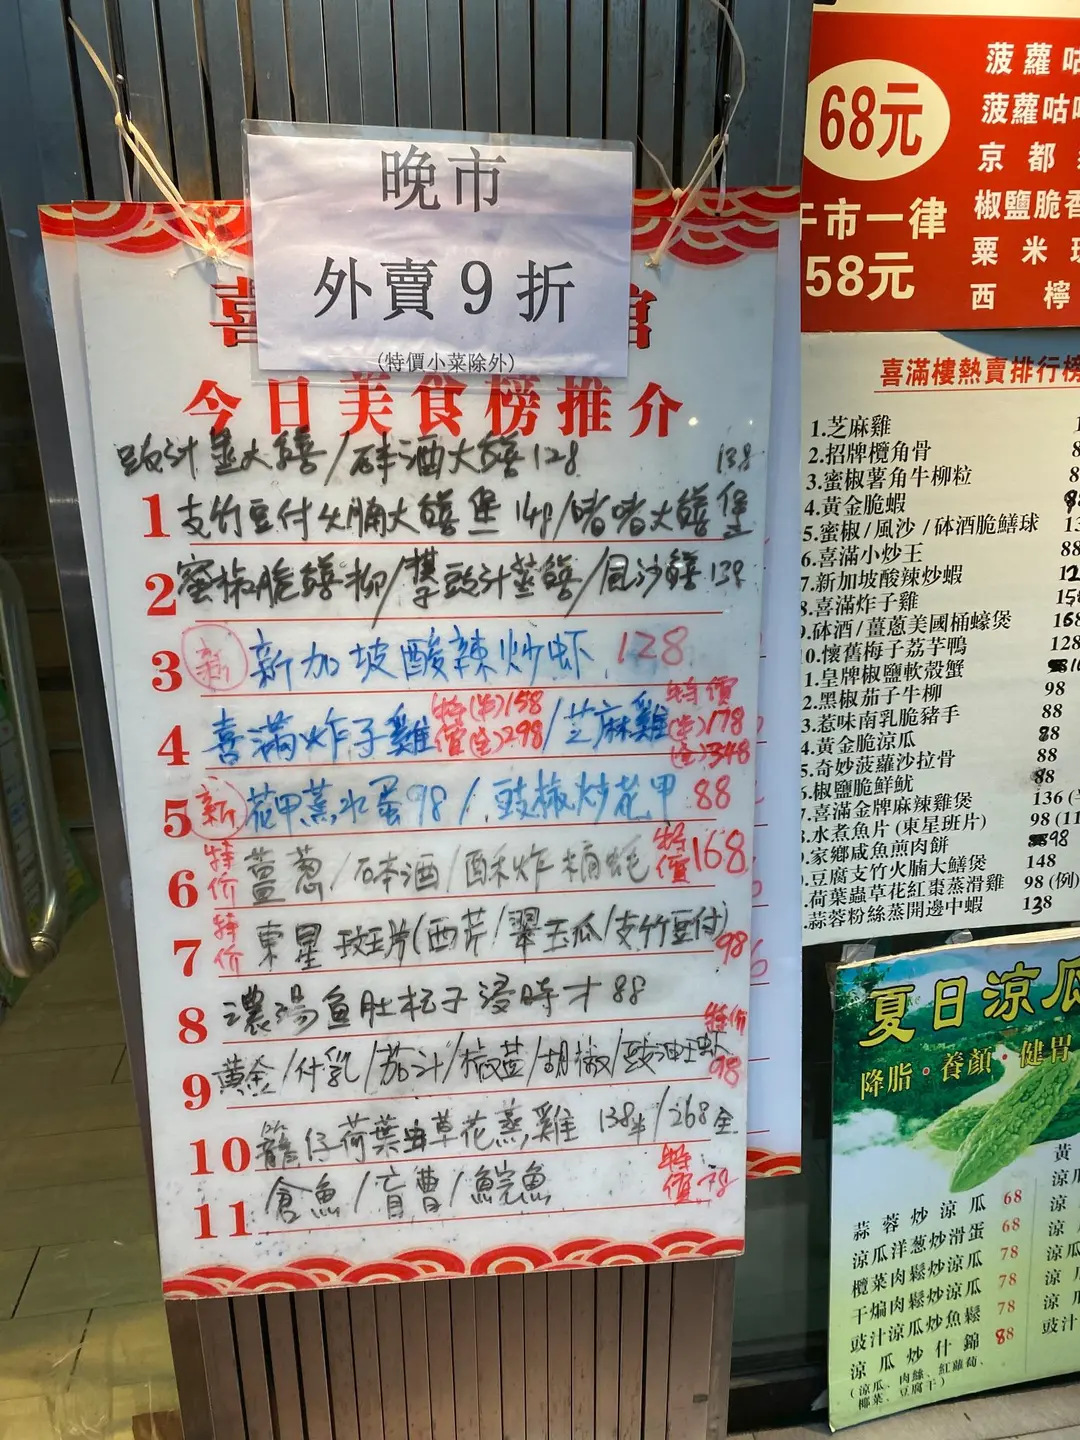 晚市
外賣9折
(特價小菜除外)
喜
館
今日美食榜推介
豉汁蒸大鱔/砵酒大鱔128
138
1 支竹豆付火腩大鱔堡148/啫啫大鱔堡
2 蜜椒脆鱔柳/欖豉汁蒸鱔/風沙鱔138
3 新 新加坡酸辣炒虾 128
4 喜滿炸子雞 特價(半)158(全)298/芝麻雞 特價(半)178(全)348
5 新 花甲蒸水蛋98/豉椒炒花甲 88
6 特价 薑葱/砵酒/酥炸桶蚝 特價168
7 特价 東星斑片(西芹/翠玉瓜/支竹豆付) 98
8 濃湯魚肚杞子浸時才 88
9 黃金/什乳/茄汁/椒盐/胡椒/豉油虾 特价98
10 籠仔荷葉虫草花蒸雞 138半/268全
11 倉魚/盲曹/鯇魚 特價78
68元
午市一律
58元
菠蘿咕
菠蘿咕
京都
椒鹽脆香
粟米
西檸
喜滿樓熱賣排行榜
1.芝麻雞
2.招牌欖角骨
3.蜜椒薯角牛柳粒
4.黃金脆蝦
5.蜜椒/風沙/砵酒脆鱔球
6.喜滿小炒王 88
7.新加坡酸辣炒蝦
8.喜滿炸子雞
9.砵酒/薑蔥美國桶蠔煲 168
10.懷舊梅子荔芋鴨 128
1.皇牌椒鹽軟殼蟹
2.黑椒茄子牛柳 98
3.惹味南乳脆豬手 88
4.黃金脆涼瓜 88
5.奇妙菠蘿沙拉骨 88
6.椒鹽脆鮮魷 88
7.喜滿金牌麻辣雞煲 136
8.水煮魚片(東星班片) 98
9.家鄉咸魚煎肉餅 98
.豆腐支竹火腩大鱔煲 148
.荷葉蟲草花紅棗蒸滑雞 98(例)
.蒜蓉粉絲蒸開邊中蝦 138
夏日涼瓜
降脂·養顏·健胃
蒜蓉炒涼瓜 68
涼瓜洋葱炒滑蛋 68
欖菜肉鬆炒涼瓜 78
干煸肉鬆炒涼瓜 78
豉汁涼瓜炒魚鬆 78
涼瓜炒什錦 88
(涼瓜、肉絲、紅蘿蔔、
椰菜、豆腐干)
黃
涼瓜
涼
涼瓜
涼
涼
豉汁